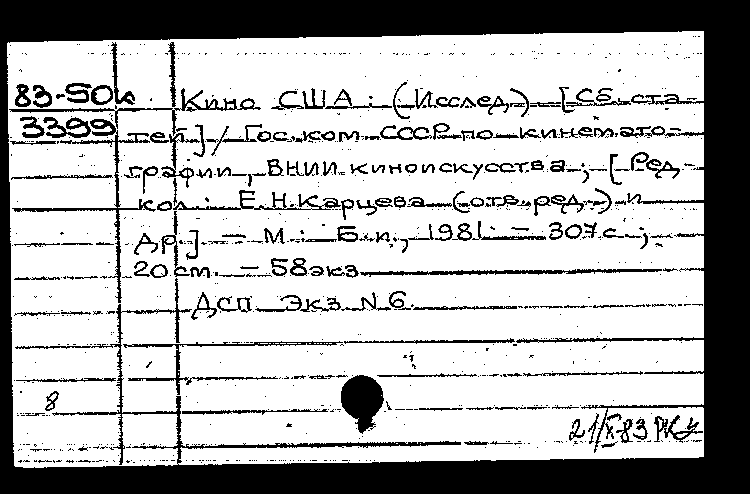 83-50к Кино США : (Исслед.) [Сб. ста-
3399 тей] / Гос. ком. СССР по кинемато-
графии, ВНИИ киноискусства ; [Ред.
кол.: Е.Н.Карцева (отв. ред.) и
др.] — М : Б.и., 1981. — 307с ;
20 см. — 58экз
ДСП Экз N 6.
8
21/X-83